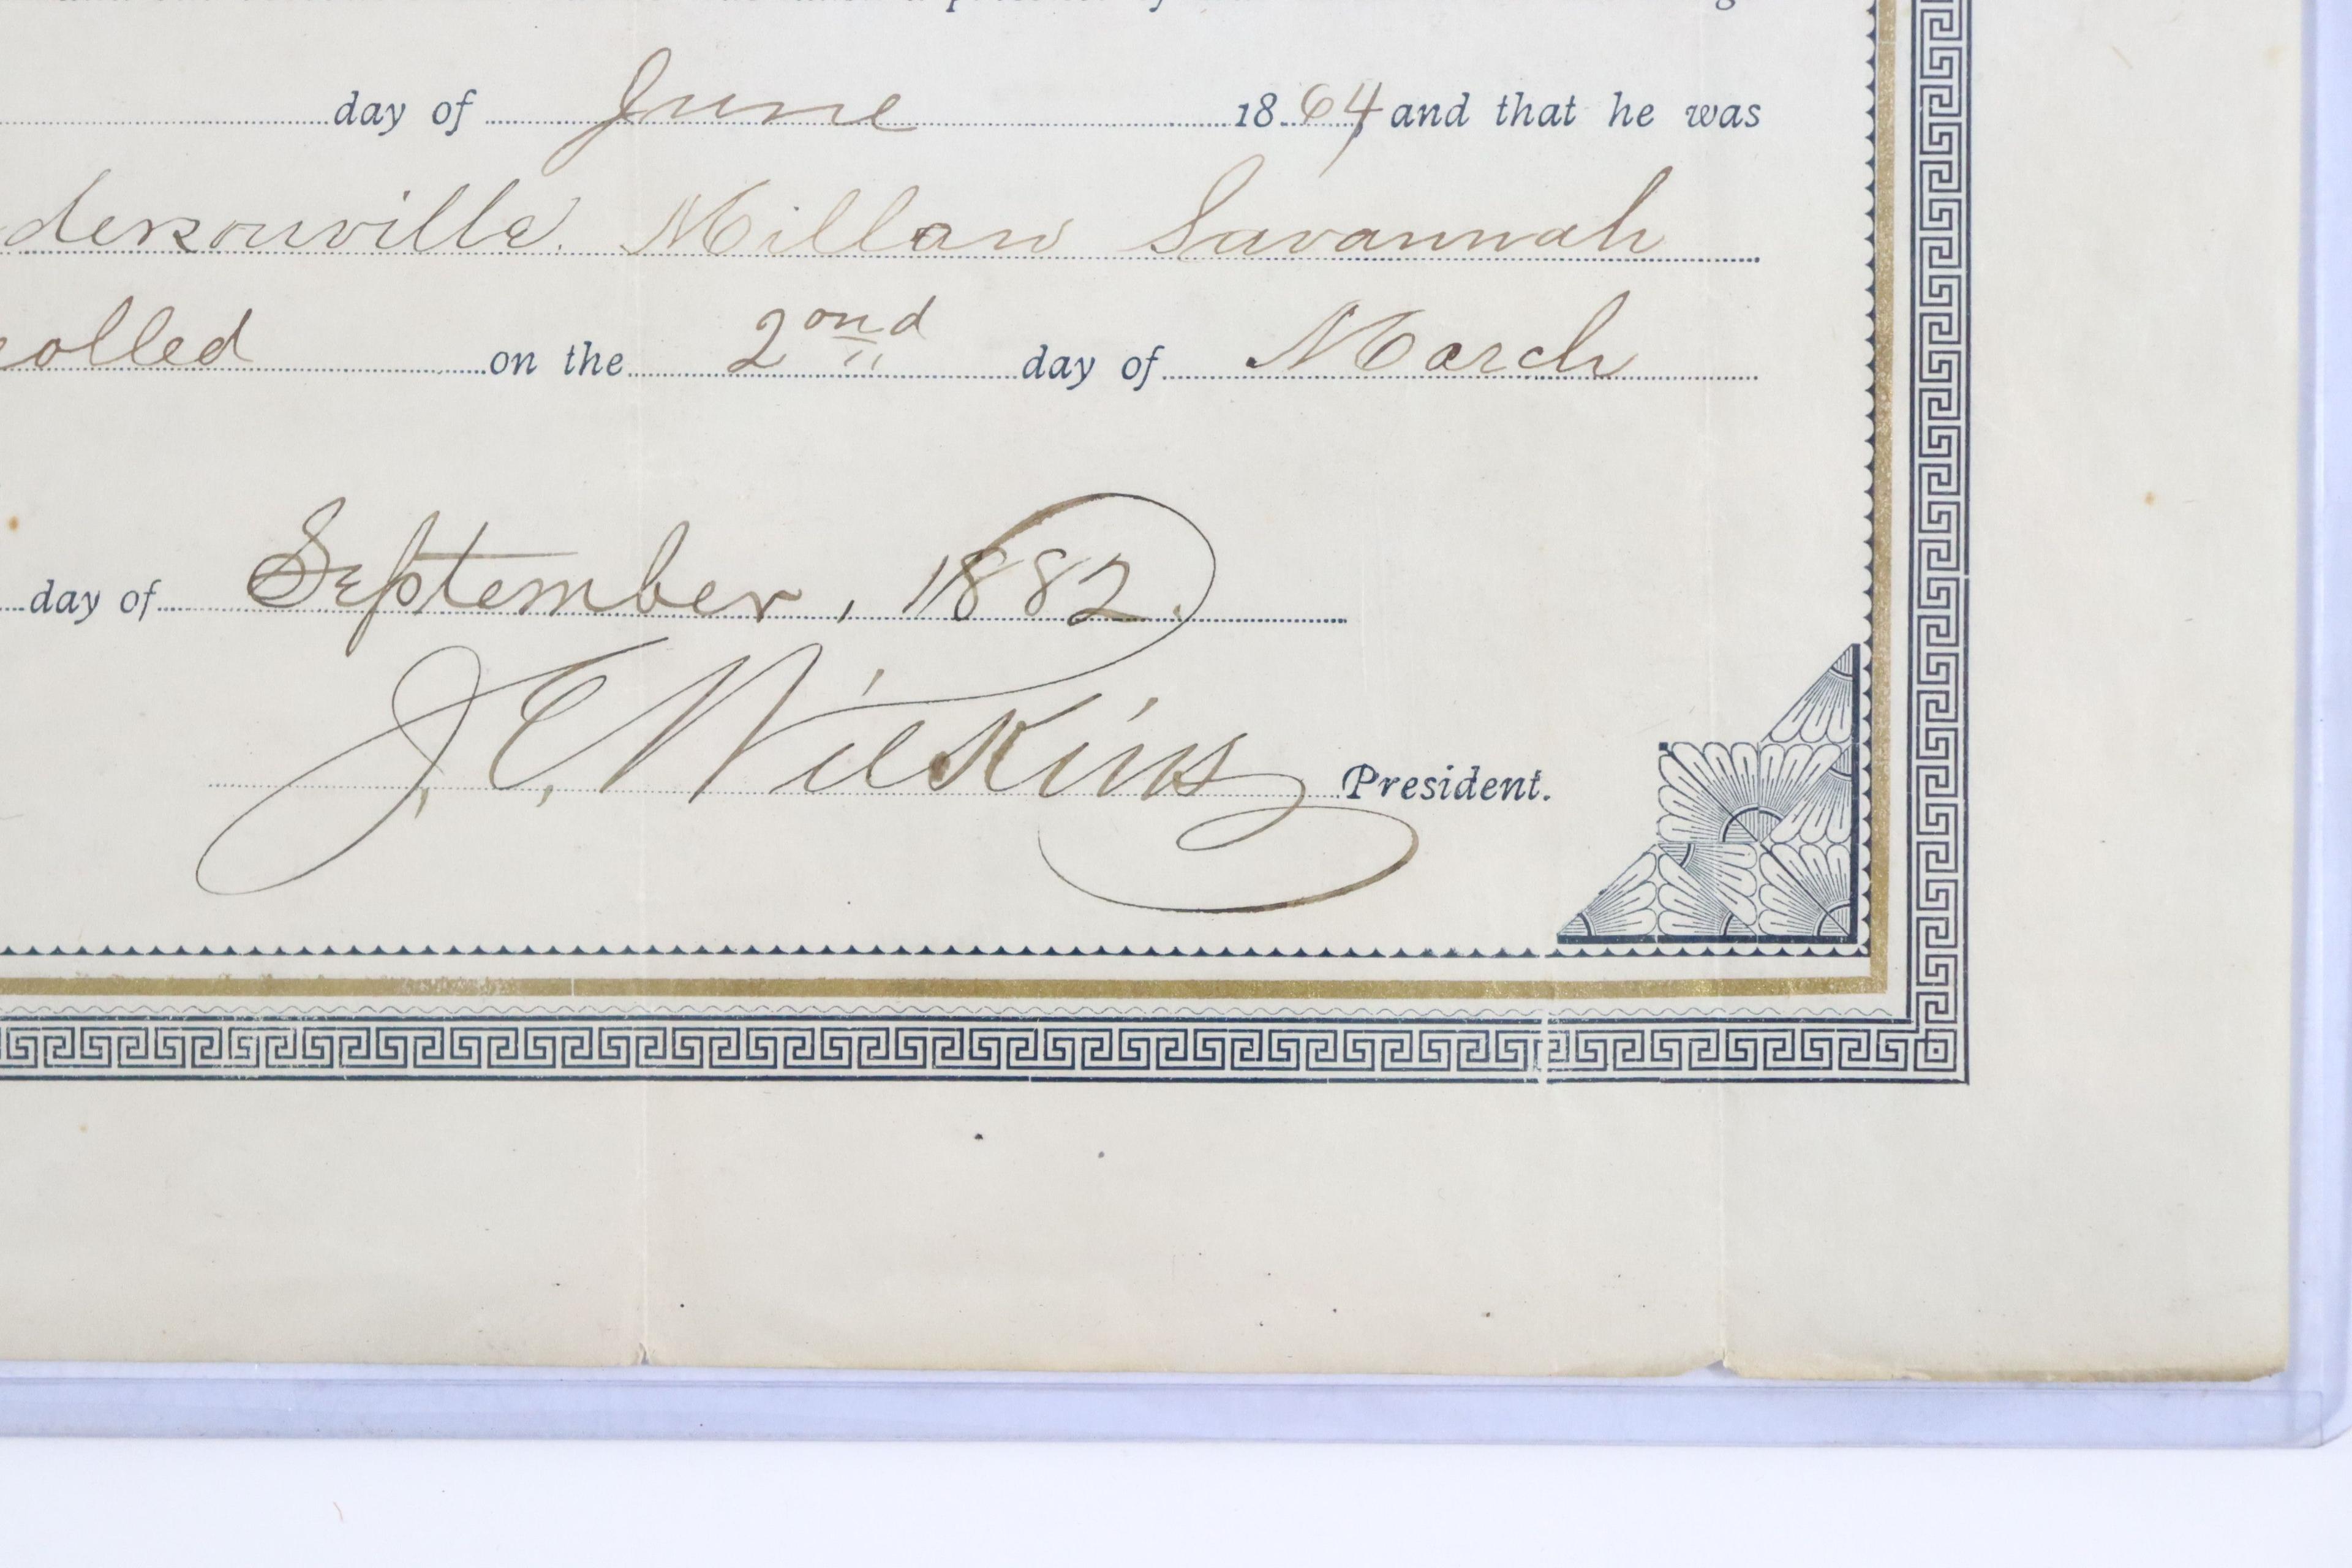 day of June 1864 and that he was
dersonville. Millan Savannah
olled on the 2ond day of March
day of September, 1882.
J. C. Wilkins President.